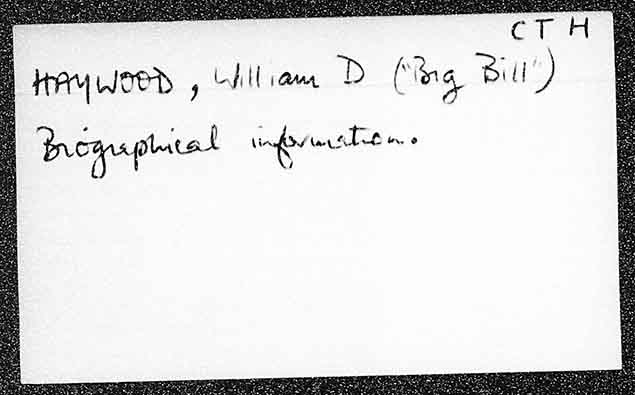 C T H
HAYWOOD, William D ("Big Bill")
Biographical information.